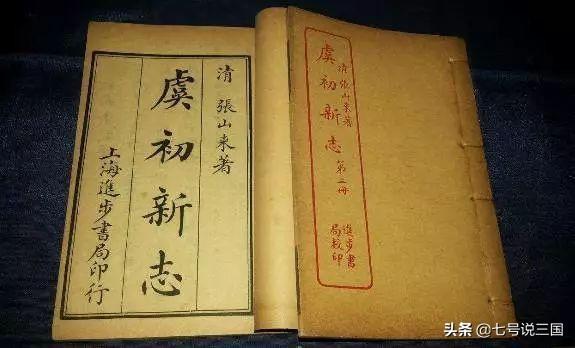 清張山來著
虞初新志
進步書
局校印
清 張山來著
虞初新志
上海進步書局印行
头条 @七号说三国